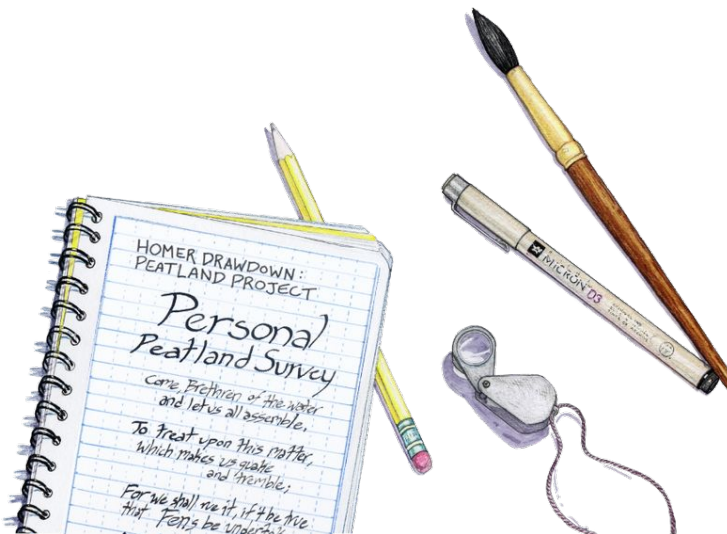 HOMER DRAWDOWN:
PEATLAND PROJECT
Personal
Peatland Survey
Come, Brethren of the water
and let us all assemble,
To treat upon this matter,
which makes us quake
and tremble;
For we shall rue it, if't be true
that Fens be
MICRON 03